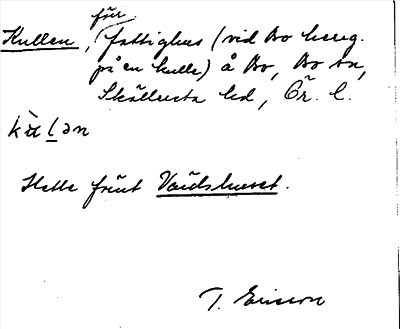 Kullen, förr fattighus (vid Bo herrg.
på en kulle) å Bo, Bo sn,
Skällvik hd, Ör. l.
kɯ̀lən
Hette förut Vårdshuset.
T. Ericson